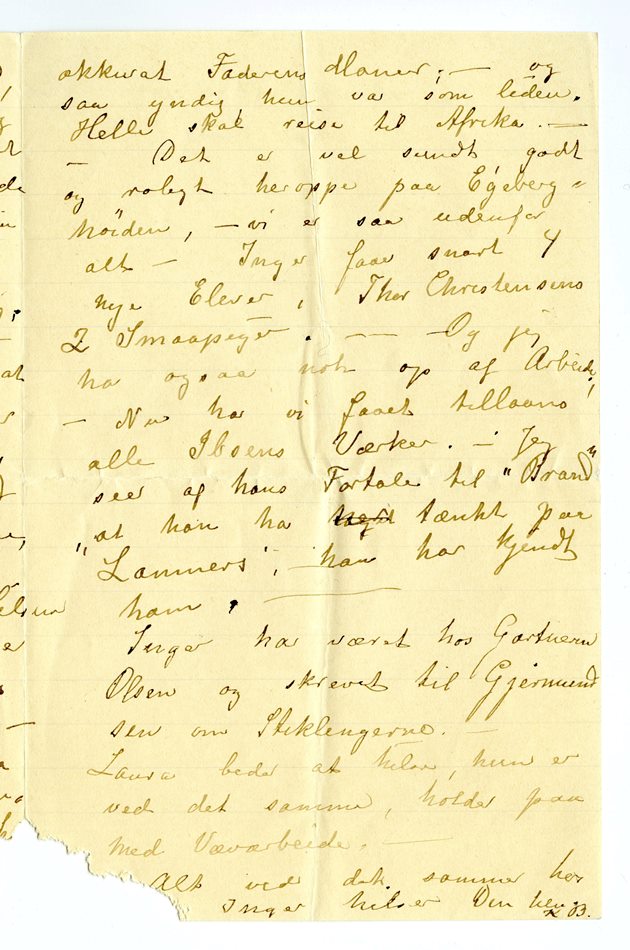 akkurat Faderens Maner; — og
saa yndig hun var som liden.
Helle skal reise til Afrika. —
— Det er vel sundt godt
og roligt heroppe paa Egeberg=
høiden, — vi er saa udenfor
alt — Inger faar snart 4
nye Elever, Thor Christensens
2 Smaapiger. — — Og jeg
har ogsaa nok op af Arbeide,
— Nu har vi faaet tillaans
alle Ibsens Værker. — Jeg
seer af hans Fortale til "Brand"
"at han har tænkt paa
Lammers", han har kjendt
ham.
Inger har været hos Gartnern
Olsen og skrevet til Gjermund
sen om Stiklingerne. —
Laura beder at hilse, hun er
ved det samme, holder paa
med Vævarbeide. —
Alt ved det samme her
Inger hilser Din hen.
K B.